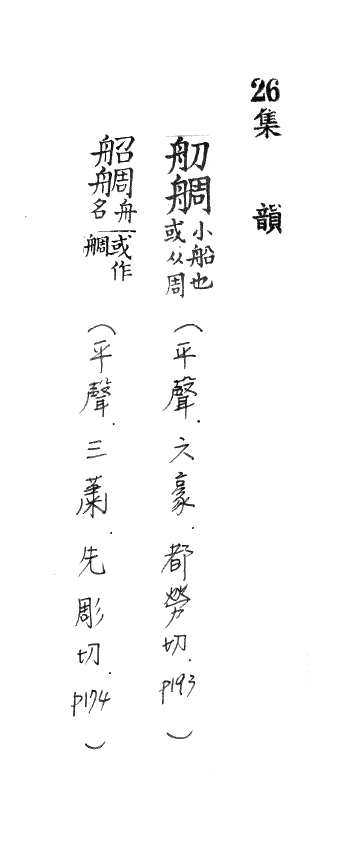 26集韻
舠鯛小船也或从周（平聲.六豪.都勞切.P193）
船舟周舟名或作（平聲.三蕭.先彫切.P174）